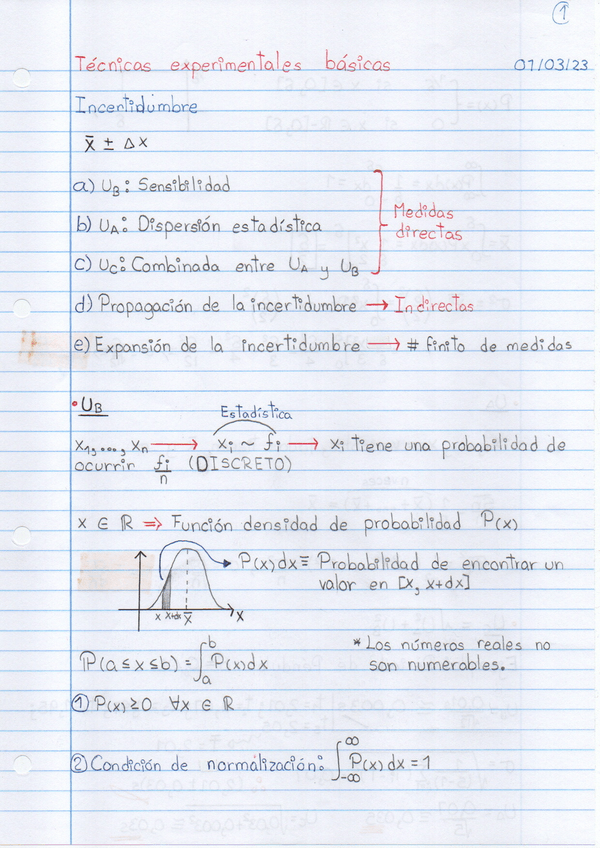 1
Técnicas experimentales básicas 07/03/23
Incertidumbre
x̄ ± Δx
a) U_B: Sensibilidad
b) U_A: Dispersión estadística
c) U_C: Combinada entre U_A y U_B
Medidas
directas
d) Propagación de la incertidumbre → Indirectas
e) Expansión de la incertidumbre → # finito de medidas
• U_B
Estadística
x₁, ..., xₙ → xᵢ ~ fᵢ → xᵢ tiene una probabilidad de
ocurrir fᵢ/n (DISCRETO)
x ∈ ℝ ⇒ Función densidad de probabilidad P(x)
P(x)dx ≡ Probabilidad de encontrar un
valor en [x, x+dx]
x x+dx x̄ x
ℙ(a ≤ x ≤ b) = ∫_a^b P(x)dx
* Los números reales no
son numerables.
① P(x) ≥ 0 ∀x ∈ ℝ
② Condición de normalización: ∫_-∞^∞ P(x)dx = 1